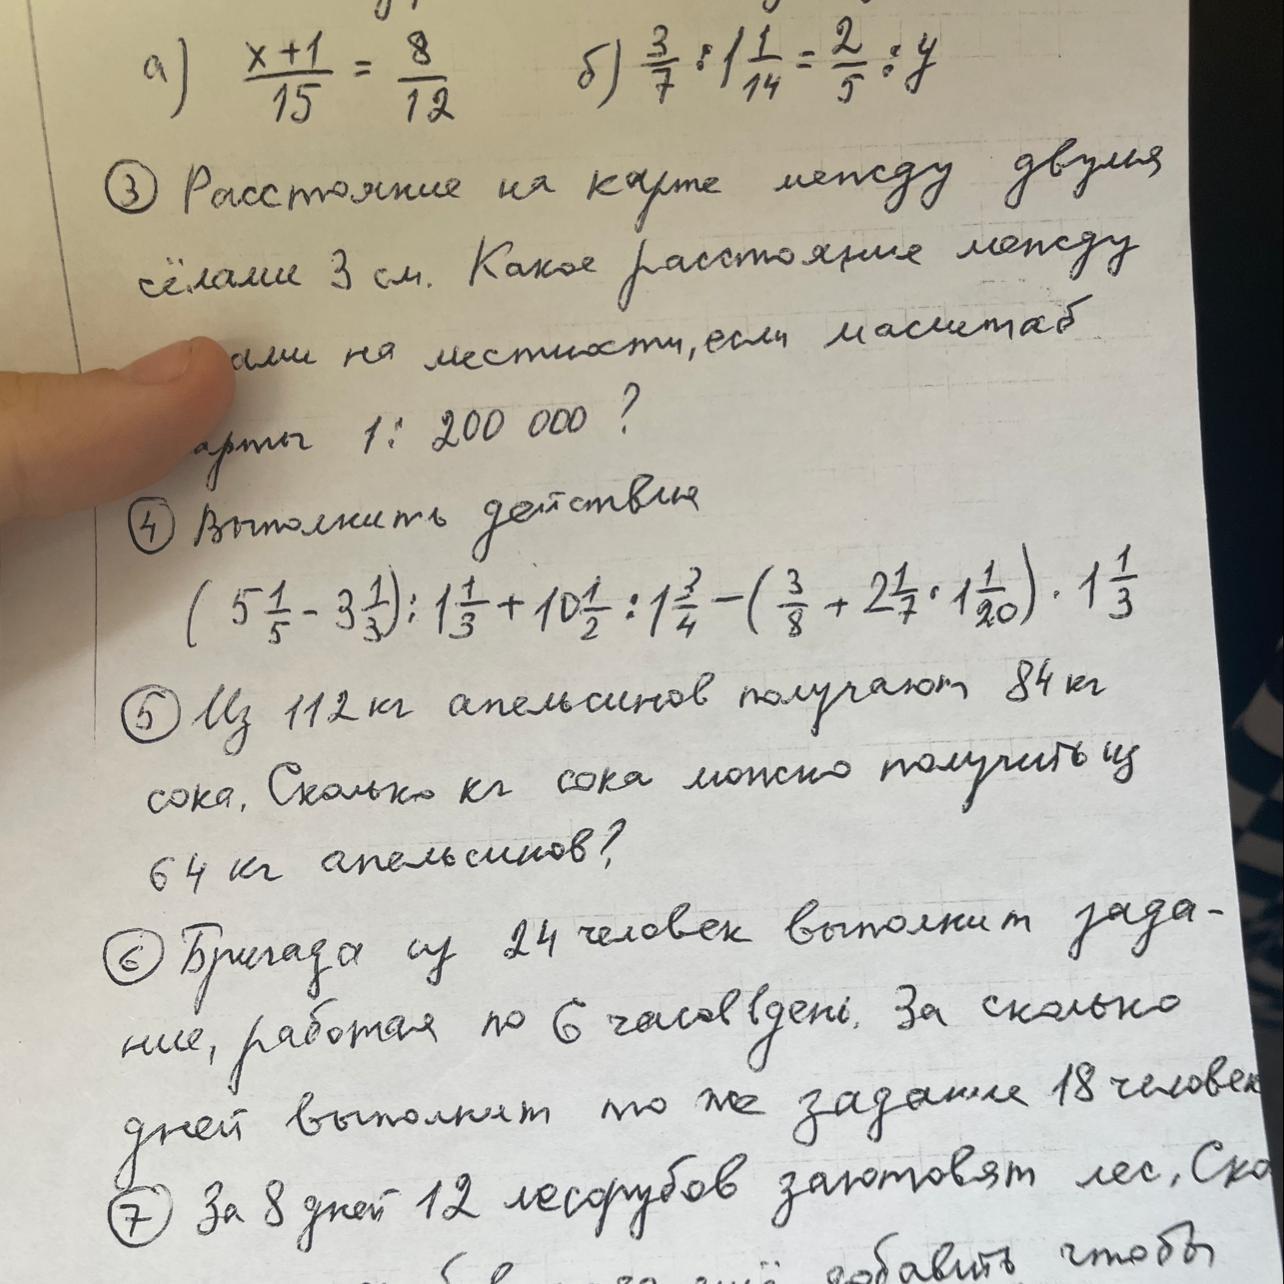 а) x+1/15 = 8/12 б) 3/7 : 1 1/14 = 2/5 : y
③ Расстояние на карте между двумя
сёлами 3 см. Какое расстояние между
ами на местности, если масштаб
арты 1 : 200 000 ?
④ Выполнить действия
(5 1/5 - 3 1/3) : 1 1/3 + 10 1/2 : 1 3/4 - (3/8 + 2 1/7 · 1 1/20) · 1 1/3
⑤ Из 112 кг апельсинов получают 84 кг
сока. Сколько кг сока можно получить из
64 кг апельсинов?
⑥ Бригада из 24 человек выполнит зада-
ние, работая по 6 часов в день. За сколько
дней выполнят то же задание 18 человек
⑦ За 8 дней 12 лесорубов заготовят лес. Ско
добавить чтобы